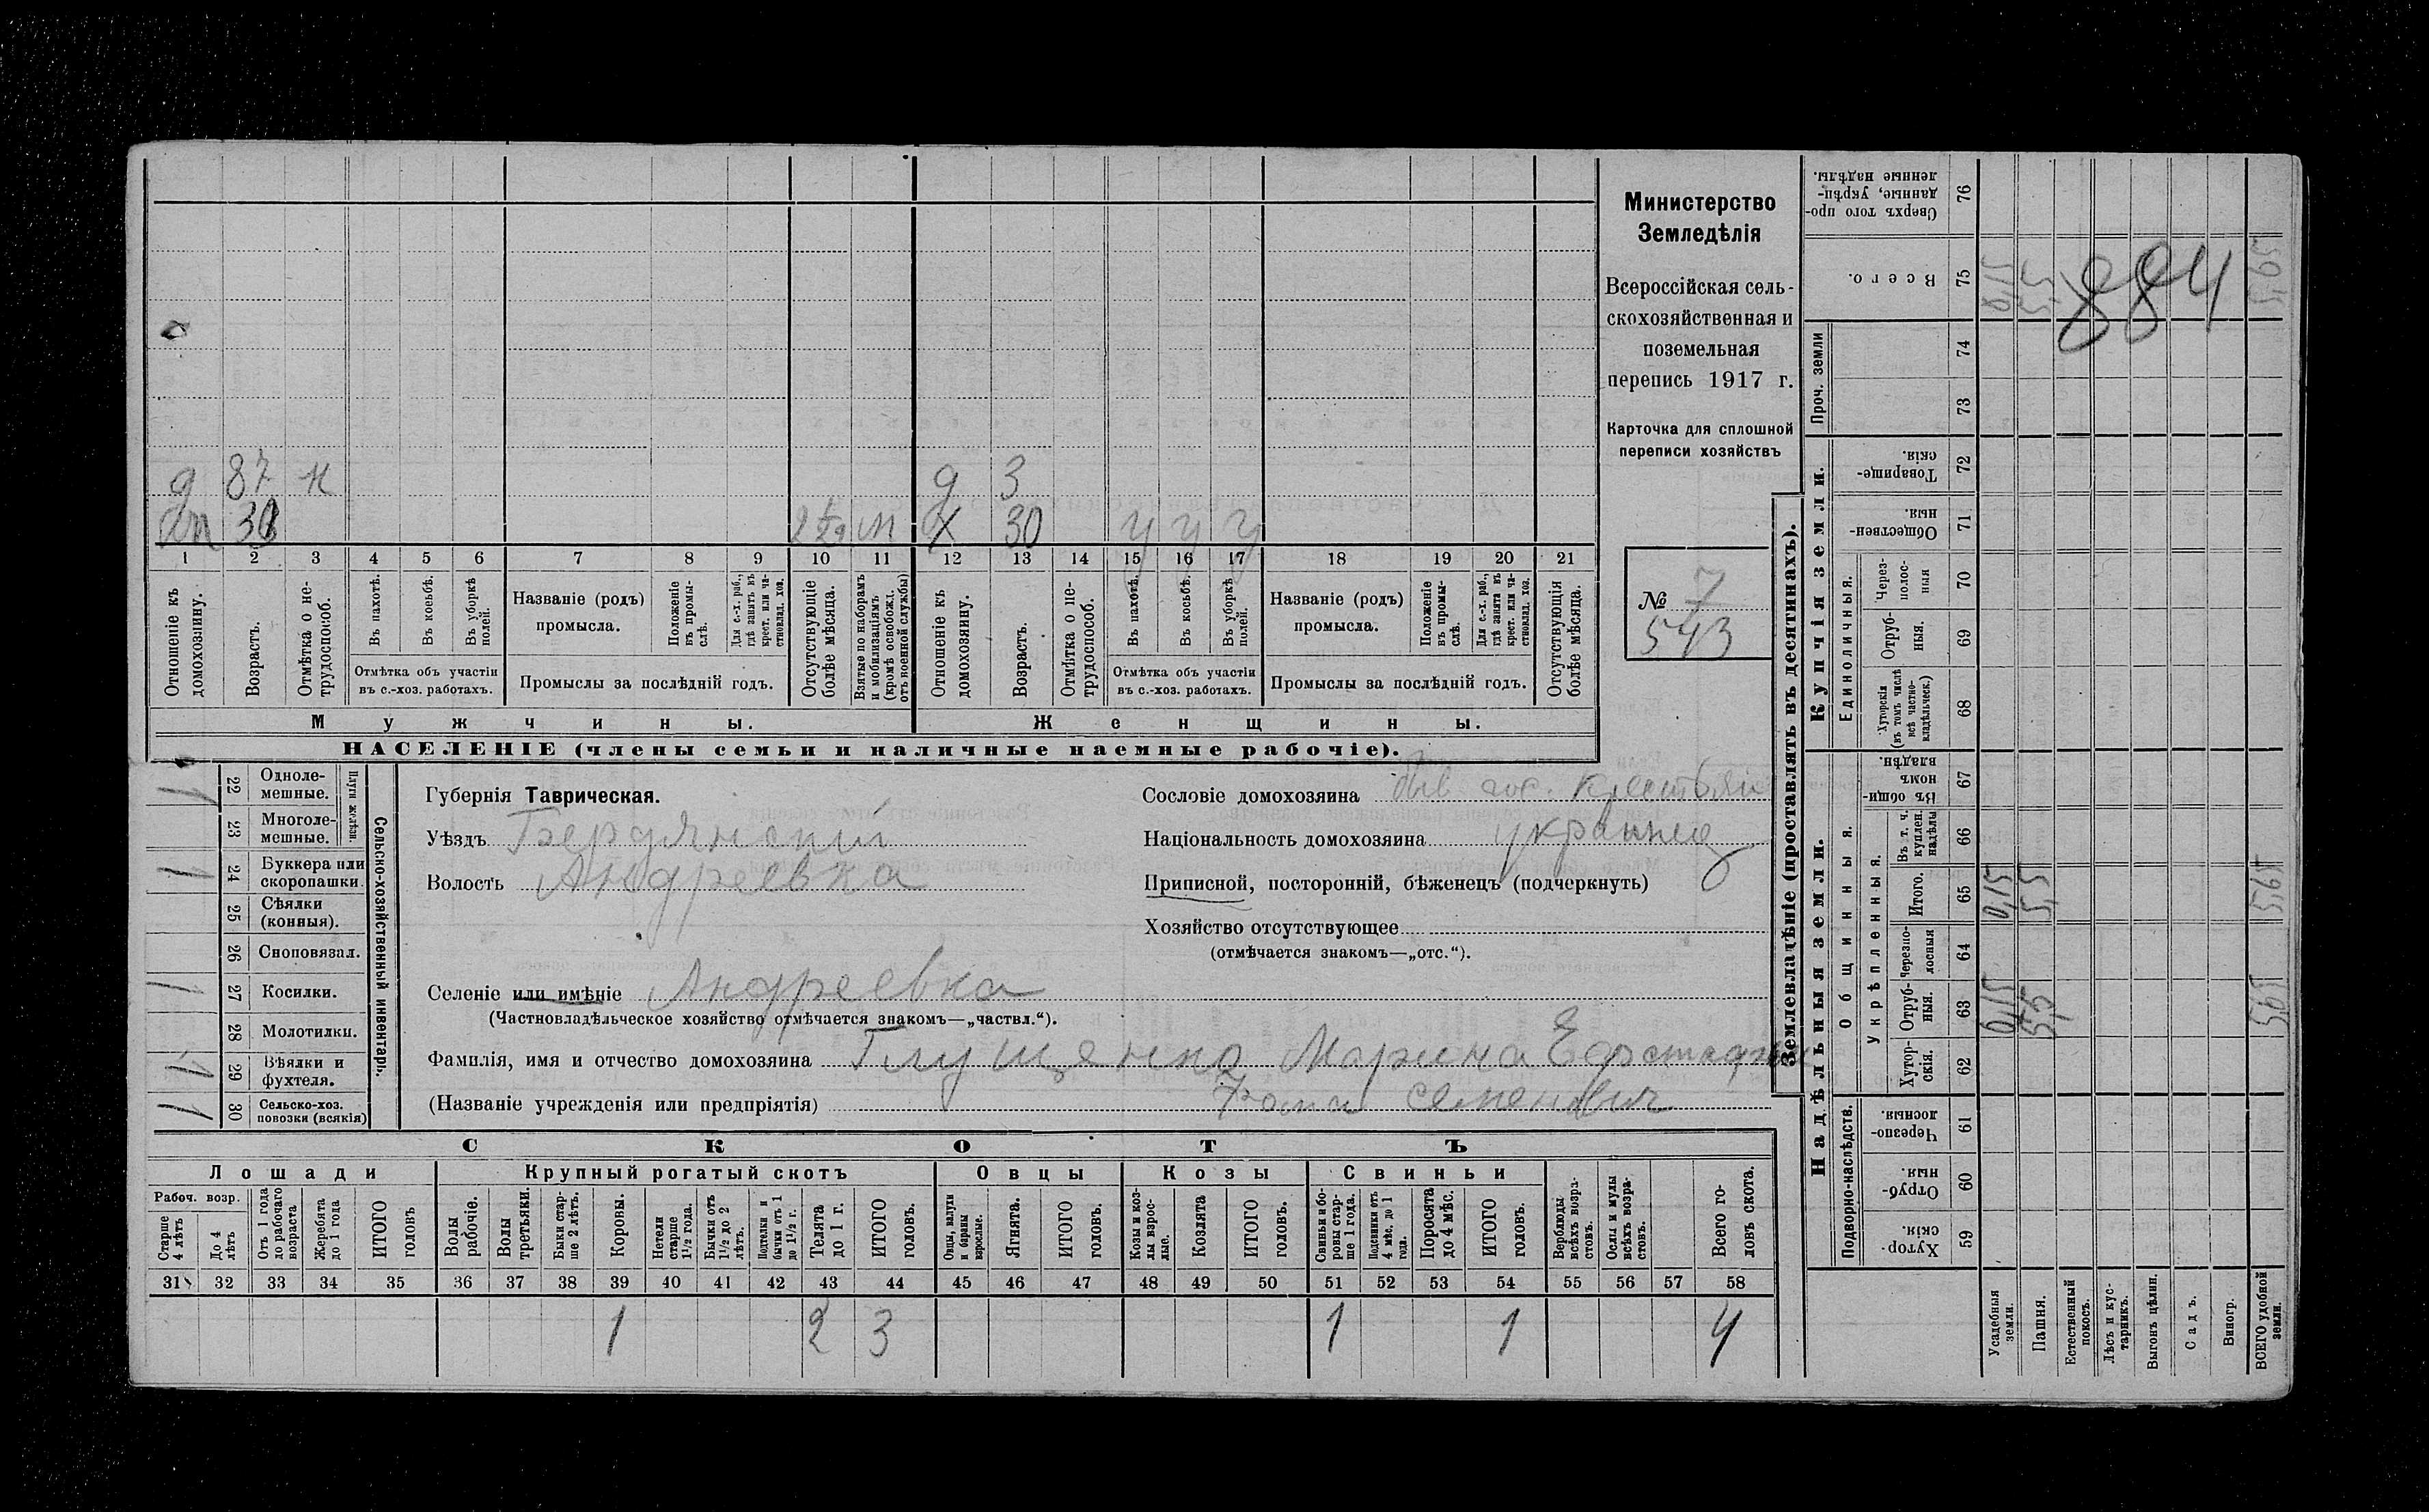 Министерство
Земледѣлія
Всероссійская сель-
скохозяйственная и
поземельная
перепись 1917 г.
Карточка для сплошной
переписи хозяйствъ
№ 7
543
д 87 н д 3
30 2 м х 30 у у у
1 2 3 4 5 6 7 8 9 10 11 12 13 14 15 16 17 18 19 20 21
Отношеніе къ домохозяину.
Возрастъ.
Отмѣтка о не-трудоспособ.
Въ пахотѣ.
Въ косьбѣ.
Въ уборкѣ полей.
Отмѣтка объ участіи
въ с.-хоз. работахъ.
Названіе (родъ)
промысла.
Положеніе въ промы-слѣ.
Для с.-х. раб., гдѣ занятъ въ крест. или ча-стновлад. хоз.
Промыслы за послѣдній годъ.
Отсутствующіе болѣе мѣсяца.
Взятые по наборамъ и мобилизаціямъ (кромѣ освобожд. отъ военной службы)
Отношеніе къ домохозяину.
Возрастъ.
Отмѣтка о не-трудоспособ.
Въ пахотѣ.
Въ косьбѣ.
Въ уборкѣ полей.
Отмѣтка объ участіи
въ с.-хоз. работахъ.
Названіе (родъ)
промысла.
Положеніе въ промы-слѣ.
Для с.-х. раб., гдѣ занята въ крест. или ча-стновлад. хоз.
Промыслы за послѣдній годъ.
Отсутствующія болѣе мѣсяца.
Мужчины.
Женщины.
НАСЕЛЕНІЕ (члены семьи и наличные наемные рабочіе).
Сельско-хозяйственный инвентарь.
Плуги желѣзн.
1 22 Одноле-мешные.
23 Многоле-мешные.
1 24 Буккера или скоропашки.
25 Сѣялки (конныя).
26 Сноповязал.
1 27 Косилки.
28 Молотилки.
1 29 Вѣялки и фухтеля.
1 30 Сельско-хоз. повозки (всякія)
Губернія Таврическая.
Уѣздъ Бердянский
Волость Андреевка
Селеніе или имѣніе Андреевка
(Частновладѣльческое хозяйство отмѣчается знакомъ—„частвл.“).
Фамилія, имя и отчество домохозяина Марина
(Названіе учрежденія или предпріятія) Семенович
Сословіе домохозяина быв гос. крестьян
Національность домохозяина украинец
Приписной, посторонній, бѣженецъ (подчеркнуть)
Хозяйство отсутствующее
(отмѣчается знакомъ—„отс.“).
СКОТЪ
Лошади
Крупный рогатый скотъ
Овцы
Козы
Свиньи
Рабоч. возр.
Старше 4 лѣтъ
До 4 лѣтъ
Отъ 1 года до рабочаго возраста
Жеребята до 1 года
ИТОГО головъ
Волы рабочіе.
Волы третьяки.
Быки стар-ше 2 лѣтъ.
Коровы.
Нетели старше 1½ года.
Бычки отъ 1½ до 2 лѣтъ.
Подтелки и бычки отъ 1 до 1½ г.
Телята до 1 г.
ИТОГО головъ.
Овцы, валухи и бараны взрослые.
Ягнята.
ИТОГО головъ.
Козы и коз-лы взрос-лые.
Козлята
ИТОГО головъ.
Свиньи и бо-ровы стар-ше 1 года.
Подсвинки отъ 4 мѣс. до 1 года.
Поросята до 4 мѣс.
ИТОГО головъ.
Верблюды всѣхъ возра-стовъ.
Ослы и мулы всѣхъ возра-стовъ.
Всего го-ловъ скота.
31 32 33 34 35 36 37 38 39 40 41 42 43 44 45 46 47 48 49 50 51 52 53 54 55 56 57 58
1 2 3 1 1 4
Землевладѣніе (проставлять въ десятинахъ).
Купчія земли.
Надѣльныя земли.
Сверхъ того про-данные, укрѣп-ленные надѣлы. 76
Всего. 75
884
Проч. земли 74
73
Товарище-скія. 72
Обществен-ныя. 71
Единоличныя.
Через-полос-ныя 70
Отруб-ныя. 69
Хуторскія (въ томъ числѣ всѣ частно-владѣльческ.) 68
Общинныя.
Въ общин-номъ владѣн. 67
Укрѣпленныя.
Въ т. ч. куплен. надѣлы 66
Итого. 65
Черезпо-лосныя 64
Отруб-ныя. 63
Хутор-скія. 62
Подворно-наслѣдств.
Черезпо-лосныя. 61
Отруб-ныя. 60
Хутор-скія. 59
Усадебныя земли.
Пашня.
Естественный покосъ.
Лѣсъ и кус-тарникъ.
Выгонъ цѣлин.
Садъ.
Виногр.
ВСЕГО удобной земли.